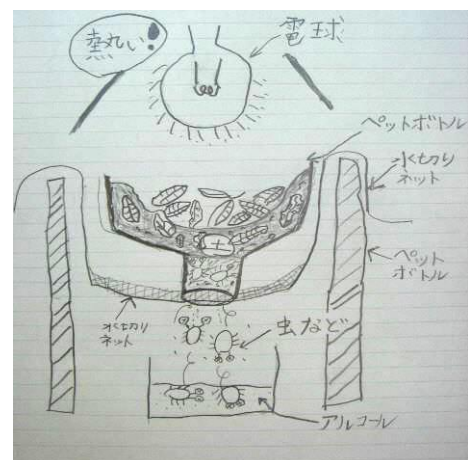 熱い!
電球
ペットボトル
水切り
ネット
ペット
ボトル
土
水切り
ネット
虫など
アルコール